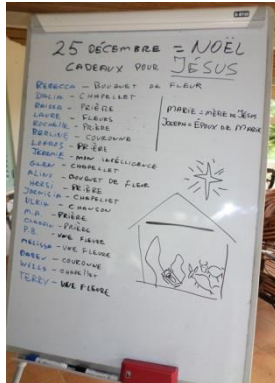 25 DÉCEMBRE = NOËL
CADEAUX POUR JÉSUS
REBECCA - BOUQUET DE FLEUR
DALIA - CHAPELLET
RAISSA - PRIÈRE
LAURE - FLEURS
ROCHELLE - PRIÈRE
BERLINE - COURONNE
- PRIÈRE
JEREMIE - MON INTÉLLIGENCE
GLEN - CHAPELLET
ALINO - BOUQUET DE FLEUR
HERSI - PRIÈRE
- CHAPELLET
ULRICH - CHANSON
M.A. - PRIÈRE
- PRIÈRE
P.B. - UNE FLEURE
MELISSA - UNE FLEURE
- COURONNE
WELLS - CHAPELLET
TERRY - UNE FLEURE
MARIE = MÈRE DE JÉSUS
JOSEPH = ÉPOUX DE MARIE